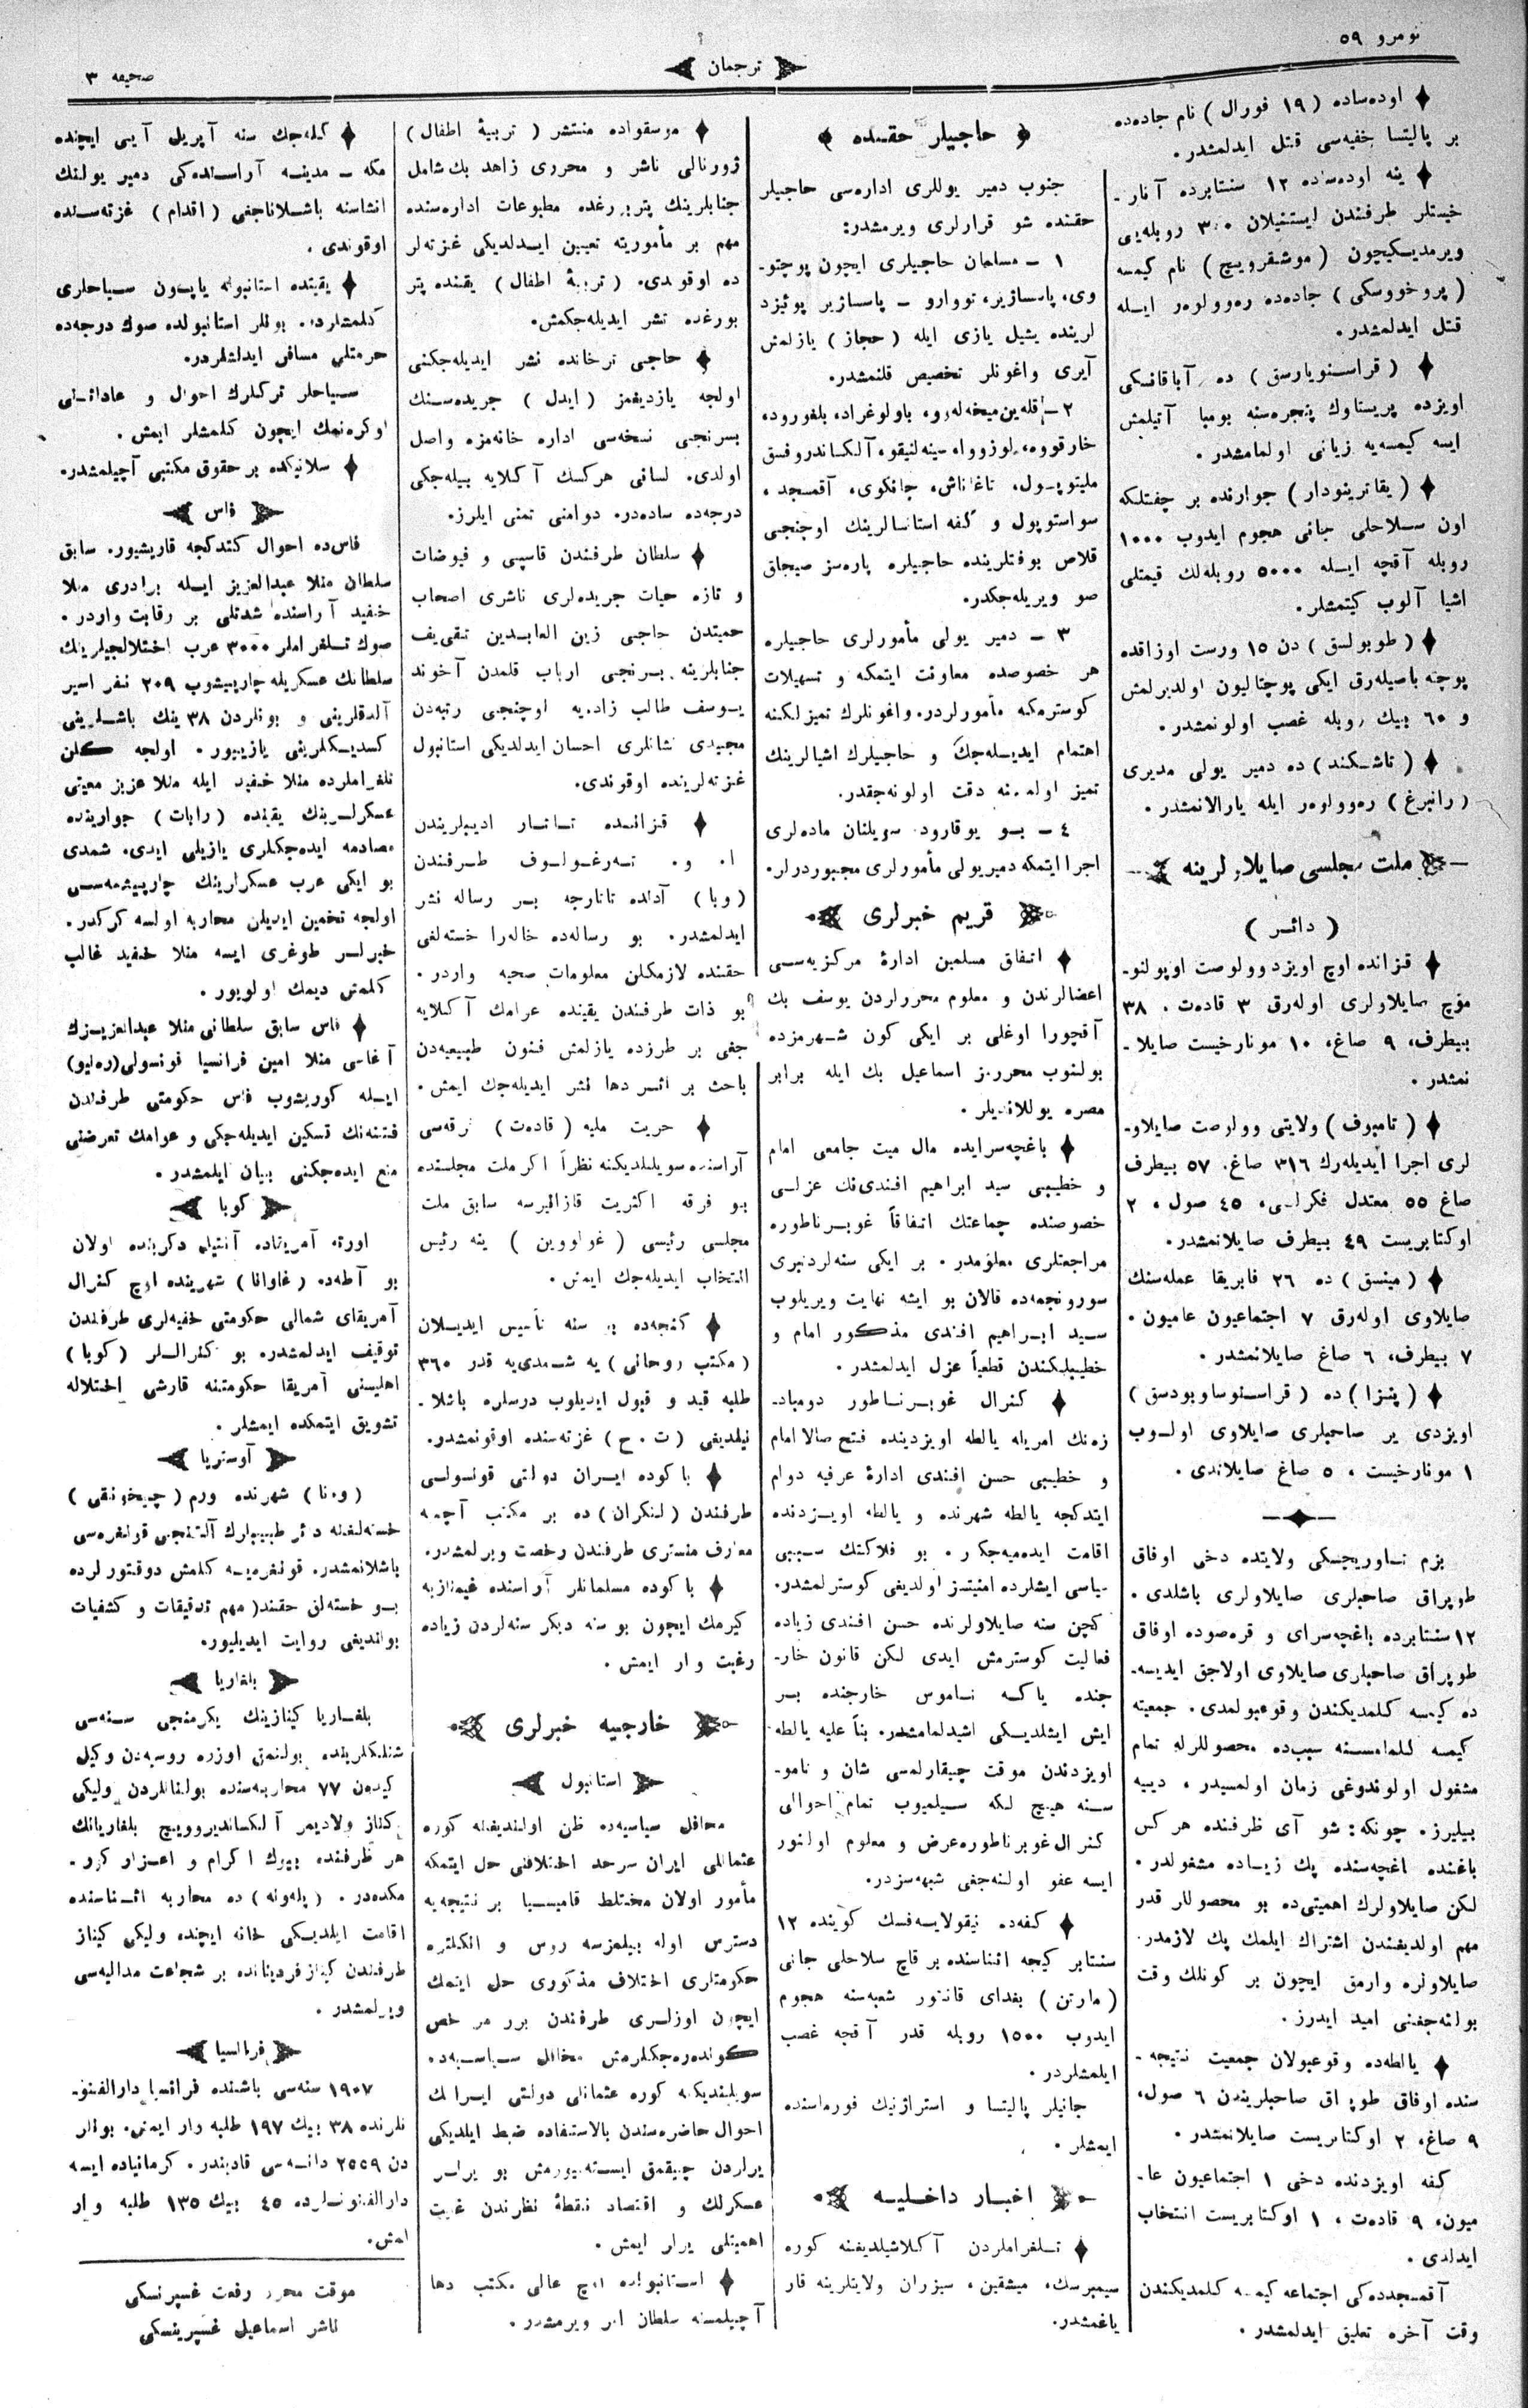 نومرو ٥٩
ترجمان
صحیفه ٣
اوده‌ساده (١٩ فورال) نام جاده‌ده
بر پالیتسا خفیه‌سی قتل ایدلمشدر.
ینه اوده‌ساده ١٢ سنتابرده آنار-
خیستلر طرفندن ایستنیلان ٣٠٠ روبله‌یی
ویرمدیکیچون (موشقروویچ) نام کیمسه
(پروخووسکی) جاده‌ده ره‌وولوور ایله
قتل ایدلمشدر.
(قراسنویارسق) ده آباقانسکی
اویزده پریستاوك پنجره‌سنه بومبا آتیلمش
ایسه کیمسه‌یه زیانی اولمامشدر.
(یقاترینودار) جوارنده بر چفتلکه
اون سلاحلی جانی هجوم ایدوب ١٠٠٠
روبله آقچه ایله ٥٠٠٠ روبله‌لك قیمتلی
اشیا آلوب کیتمشلر.
(طوبولسق) دن ١٥ ورست اوزاقده
پوچته باصیله‌رق ایکی پوچتالیون اولدیرلمش
و ٦٠ بیك روبله غصب اولونمشدر.
(تاشکند) ده دمیر یولی مدیری
(رانبرغ) ره‌وولوور ایله یارالانمشدر.
ملت مجلسی صایلاولرینه
(دائر)
قزانده اوچ اویزد وولوصت اوپولنو-
مؤچ صایلاولری اوله‌رق ٣ قاده‌ت، ٣٨
بیطرف، ٩ صاغ، ١٠ مونارخیست صایلا-
نمشدر.
(تامبوف) ولایتی وولوصت صایلاو-
لری اجرا ایدیله‌رك ٣١٦ صاغ، ٥٧ بیطرف
صاغ ٥٥ معتدل فکرلی، ٤٥ صول، ٢
اوکتابریست ٤٩ بیطرف صایلانمشدر.
(مینسق) ده ٢٦ فابریقا عمله‌سنك
صایلاوی اوله‌رق ٧ اجتماعیون عامیون،
٧ بیطرف، ٦ صاغ صایلانمشدر.
(پنزا) ده (قراسنوسلوبودسق)
اویزدی یر صاحبلری صایلاوی اولوب
١ مونارخیست، ٥ صاغ صایلاندی.
بزم تاوریچسکی ولایتده دخی اوفاق
طوپراق صاحبلری صایلاولری باشلدی.
١٢ سنتابرده باغچه‌سرای و قره‌صوده اوفاق
طوپراق صاحبلری صایلاوی اولاجق ایدیسه-
ده کیمسه کلمدیکندن وقوعبولمدی. جمعیته
کیمسه کلمامسنه سبب‌ده محصوللرله تمام
مشغول اولوندوغی زمان اولمسیدر، دییه
بیلیرز. چونکه: شو آی ظرفنده هر کس
باغنده اغچه‌سنده پك زیاده مشغولدر.
لکن صایلاولرك اهمیتی‌ده بو محصوللر قدر
مهم اولدیغندن اشتراك ایلمك پك لازمدر.
صایلاولره وارمق ایچون بر کونلك وقت
بولنه‌جغنی امید ایدرز.
یالطه‌ده وقوعبولان جمعیت نتیجه-
سنده اوفاق طوپراق صاحبلریندن ٦ صول،
٩ صاغ، ٢ اوکتابریست صایلانمشدر.
کفه اویزدنده دخی ١ اجتماعیون عا-
میون، ٩ قاده‌ت، ١ اوکتابریست انتخاب
ایدلدی.
آقمسجدده‌کی اجتماعه کیمسه کلمدیکندن
وقت آخره تعلیق ایدلمشدر.
حاجیلر حقنده
جنوب دمیر یوللری اداره‌سی حاجیلر
حقنده شو قرارلری ویرمشدر:
١ - مسلمان حاجیلری ایچون پوچتو-
وی، پاسساژیر، تووارو - پاسساژیر پوئیزد
لرینده یشیل یازی ایله (حجاز) یازلمش
آیری واغونلر تخصیص قلنمشدر.
٢ - قله‌ین‌میخه‌لوو، پاولوغراد، بلغورود،
خارقووه، لوزووا، سینه‌لنیقوه، آلکساندروفسق
ملیتوپول، تاغاناش، جانکوی، آقمسجد،
سواستوپول و کفه استانسالرینك اوچنجی
قلاص بوفتلرینده حاجیلره پاره‌سز صیجاق
صو ویریله‌جکدر.
٣ - دمیر یولی مأمورلری حاجیلره
هر خصوصده معاونت ایتمکه و تسهیلات
کوسترمکه مأمورلردر. واغونلرك تمیزلکنه
اهتمام ایدیله‌جك و حاجیلرك اشیالرینك
تمیز اولمسنه دقت اولونه‌جقدر.
٤ - بو یوقارود سویلنان ماده‌لری
اجرا ایتمکه دمیریولی مأمورلری مجبوردرلر.
قریم خبرلری
اتفاق مسلمین ادارهٔ مرکزیه‌سی
اعضالرندن و معلوم محررلردن یوسف بك
آقچورا اوغلی بر ایکی کون شهرمزده
بولنوب محررمز اسماعیل بك ایله برابر
مصره یوللاندیلر.
باغچه‌سرایده مال میت جامعی امام
و خطیبی سید ابراهیم افندی‌نك عزلی
خصوصنده جماعتك اتفاقاً غوبرناطوره
مراجعتلری معلومدر. بر ایکی سنه‌لردنبری
سورونجمه‌ده قالان بو ایشه نهایت ویریلوب
سید ابراهیم افندی مذکور امام و
خطیبلکندن قطعیاً عزل ایدلمشدر.
کنرال غوبرناطور دومباد-
زه‌نك امریله یالطه اویزدینده فتح صالا امام
و خطیبی حسن افندی ادارهٔ عرفیه دوام
ایتدکجه یالطه شهرنده و یالطه اویزدنده
اقامت ایده‌میه‌جکر. بو فلاکتك سببی
سیاسی ایشلرده امنیتسز اولدیغی کوسترلمشدر.
کچن سنه صایلاولرنده حسن افندی زیاده
فعالیت کوسترمش ایدی لکن قانون خار-
جنده یاکه ناموس خارجنده بر
ایش ایشلدیکی اشیدلمامشدر. بناً علیه یالطه
اویزدندن موقت چیقارلمسی شان و نامو-
سنه هیچ لکه سیلمیوب تمام احوالی
کنرال غوبرناطوره عرض و معلوم اولنور
ایسه عفو اولنه‌جغی شبهه‌سزدر.
کفه‌ده نیقولایه‌فسك کوینده ١٢
سنتابر کیجه اثناسنده بر قاچ سلاحلی جانی
(مارتن) بغدای قانتور شعبه‌سنه هجوم
ایدوب ١٥٠٠ روبله قدر آقچه غصب
ایلمشلردر.
جانیلر پالیتسا و استراژنیك فورماسنده
ایمشلر.
اخبار داخلیه
تلغراملردن آکلاشیلدیغنه کوره
سیمبرسك، میشقین، سیزران ولایتلرینه قار
یاغمشدر.
موسقواده منتشر (تربیهٔ اطفال)
ژورنالی ناشر و محرری زاهد بك شامل
جنابلرینك پتربرغده مطبوعات اداره‌سنده
مهم بر مأموریته تعیین ایدلدیکی غزته‌لر
ده اوقوندی. (تربیهٔ اطفال) یقنده پتر
بورغده نشر ایدیله‌جکمش.
حاجی ترخانده نشر ایدیله‌جکنی
اولجه یازدیغمز (ایدل) جریده‌سنك
بسرنجی نسخه‌سی اداره خانه‌مزه واصل
اولدی. لسانی هرکسك آکلایه بیله‌جکی
درجه‌ده ساده‌در. دوامنی تمنی ایلرز.
سلطان طرفندن قاسپی و فیوضات
و تازه حیات جریده‌لری ناشری اصحاب
حمیتدن حاجی زین العابدین تقی‌یف
جنابلرینه برنجی ارباب قلمدن آخوند
یوسف طالب زاده‌یه اوچنجی رتبه‌دن
مجیدی نشانلری احسان ایدلدیکی استانبول
غزته‌لرینده اوقوندی.
قزانده تاتار ادیبلریندن
ا. و. ته‌رغولوف طرفندن
(وبا) آدلده تاتارجه بر رساله نشر
ایدلمشدر. بو رساله‌ده خاله‌را خسته‌لغی
حقنده لازمکلن معلومات صحیه واردر.
بو ذات طرفندن یقینده عوامك آکلایه
جغی بر طرزده یازلمش فنون طبیعیه‌دن
باحث بر اثر دها نشر ایدیله‌جك ایمش.
حریت ملیه (قاده‌ت) فرقه‌سی
آراسنده سویلندیکنه نظراً اکر ملت مجلسنده
بو فرقه اکثریت قازاقیرسه سابق ملت
مجلسی رئیسی (غولووین) ینه رئیس
انتخاب ایدیله‌جك ایمش.
کنجه‌ده بو سنه تأسیس ایدیلان
(مکتب روحانی) یه شمدی‌یه قدر ٣٦٠
طلبه قید و قبول ایدیلوب درسلره باشلا-
نیلدیغی (ت.ح) غزته‌سنده اوقونمشدر.
باکوده ایران دولتی قونسولی
طرفندن (لنکران) ده بر مکتب آچمه
معارف منستری طرفندن رخصت ویرلمشدر.
باکوده مسلمانلر آراسنده غیمنازیه
کیرمك ایچون بو سنه دیکر سنه‌لردن زیاده
رغبت وار ایمش.
خارجیه خبرلری
استانبول
محافل سیاسیه‌ده ظن اولندیغنه کوره
عثمانلی ایران سرحد اختلافنی حل ایتمکه
مأمور اولان مختلط قامیسیا بر نتیجه‌یه
دسترس اوله بیلمزسه روس و انکلتره
حکومتلری اختلاف مذکوری حل ایتمك
ایچون اوزلری طرفندن برر مرخص
کونده‌ره‌جکلرمش. محافل سیاسیه‌ده
سویلندیکنه کوره عثمانلی دولتی ایرانك
احوال حاضره‌سندن بالاستفاده ضبط ایلدیکی
یرلردن چیقمق ایسته‌میورمش. بو یرلر
عسکرلك و اقتصاد نقطهٔ نظرندن غایت
اهمیتلی یرلر ایمش.
استانبولده اوچ عالی مکتب دها
آچیلمسنه سلطان امر ویرمشدر.
کله‌جك سنه آپریل آیی ایچنده
مکه - مدینه آراسنده‌کی دمیر یولنك
انشاسنه باشلاناجغی (اقدام) غزته‌سنده
اوقوندی.
یقینده استانبوله یاپون سیاحلری
کلمشلردر. بونلر استانبولده صوك درجه‌ده
حرمتلی مسافر ایدلمشلردر.
سیاحلر ترکلرك احوال و عاداتنی
اوکره‌نمك ایچون کلمشلر ایمش.
سلانیکده بر حقوق مکتبی آچیلمشدر.
فاس
فاس‌ده احوال کتدکجه قاریشیور. سابق
سلطان منلا عبدالعزیز ایله برادری منلا
خفید آراسنده شدتلی بر رقابت واردر.
صوك تلغراملر ٣٠٠٠ عرب اختلالجیلرینك
سلطانك عسکریله چارپیشوب ٢٠٩ نفر اسیر
آلدقلرینی و بونلردن ٣٨ ینك باشلرینی
کسدیکلرینی یازییور. اولجه کلن
تلغراملرده منلا خفید ایله منلا عزیز معیتی
عسکرلرینك یقینده (رابات) جوارینده
مصادمه ایده‌جکلری یازیلی ایدی. شمدی
بو ایکی عرب عسکرلرینك چارپیشمه‌سی
اولجه تخمین ایدیلن محاربه اولسه کرکدر.
خبرلر طوغری ایسه منلا خفید غالب
کلمش دیمك اولویور.
فاس سابق سلطانی منلا عبدالعزیزك
آغاسی منلا امین فرانسیا قونسولی (ره‌لیو)
ایله کوریشوب فاس حکومتی طرفندن
فتنه‌نك تسکین ایدیله‌جکی و عوامك تعرضنی
منع ایده‌جکنی بیان ایلمشدر.
کوبا
اورته آمریقاده آنتیل دکزنده اولان
بو آطه‌ده (غاوانا) شهرینده اوچ کنرال
آمریقای شمالی حکومتی خفیه‌لری طرفندن
توقیف ایدلمشدر. بو کنراللر (کوبا)
اهلیسنی آمریقا حکومتنه قارشی اختلاله
تشویق ایتمکده ایمشلر.
آوستریا
(ونا) شهرنده ورم (چیخوتقی)
خسته‌لغنه دائر طبیبلرك آلتنجی قونغره‌سی
باشلانمشدر. قونغره‌یه کلمش دوقتورلرده
بو خسته‌لق حقنده مهم تدقیقات و کشفیات
بولندیغی روایت ایدیلیور.
بلغاریا
بلغاریا کنیازینك یکرمنجی سنه‌سی
شنلکلرینده بولنمق اوزره روسیه‌دن وکیل
کیدن ٧٧ محاربه‌سنده بولنانلردن ولیکی
کناز ولادیمر آلکساندیروویچ بلغاریانك
هر طرفنده بیوك اکرام و اعزاز کور-
مکده‌در. (پلونه) ده محاربه اثناسنده
اقامت ایلدیکی خانه ایچنده ولیکی کنیاز
طرفندن کنیاز فردینانده بر شجاعت مدالیه‌سی
ویرلمشدر.
فرانسیا
١٩٠٧ سنه‌سی باشنده فرانسیا دارالفنو-
نلرنده ٣٨ بیك ١٩٧ طلبه وار ایمش. بونلر
دن ٢٥٥٩ دانه‌سی قادیندر. کرمانیاده ایسه
دارالفنونلرده ٤٥ بیك ١٣٥ طلبه وار
ایمش.
موقت محرر رفعت غسپرنسکی
ناشر اسماعیل غسپرینسکی